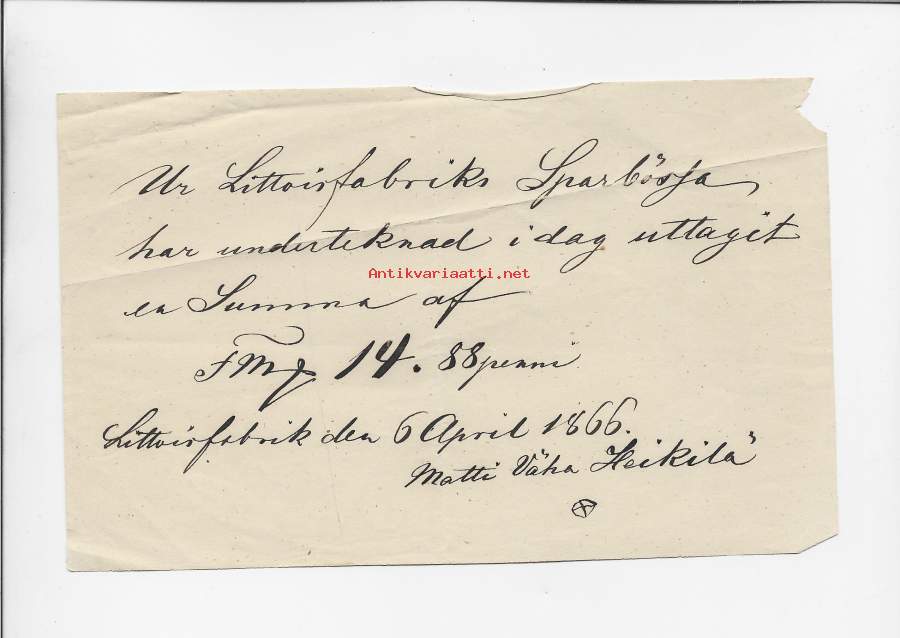 Ur Littoisfabriks Sparbössa
har underteknad i dag uttagit
Antikvariaatti.net
en Summa af
FMg 14. 88 penni
Littoisfabrik den 6 April 1866.
Matti Väha Heikilä